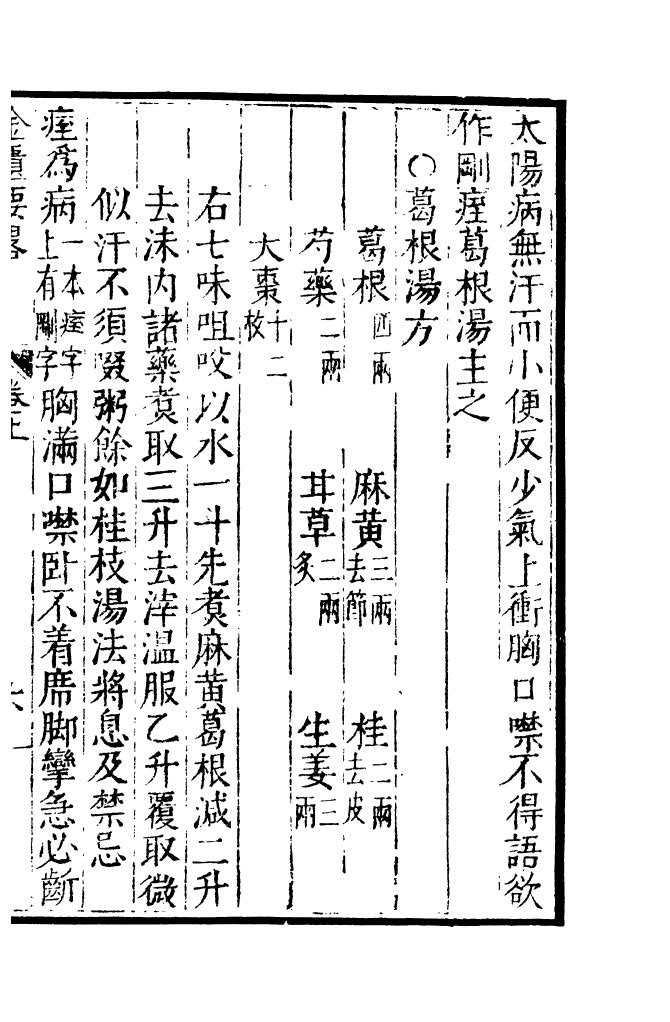 太陽病無汗而小便反少氣上衝胸口噤不得語欲
作剛痓葛根湯主之
○葛根湯方
葛根四兩 麻黃三兩去節 桂二兩去皮
芍藥二兩 甘草二兩炙 生姜三兩
大棗十二枚
右七味咀㕮以水一斗先煑麻黄葛根減二升
去沫内諸藥煑取三升去滓温服乙升覆取微
似汗不須啜粥餘如桂枝湯法將息及禁忌
痓爲病一本痓字上有剛字胸滿口噤卧不着席脚攣急必齗
金匱要畧 卷上